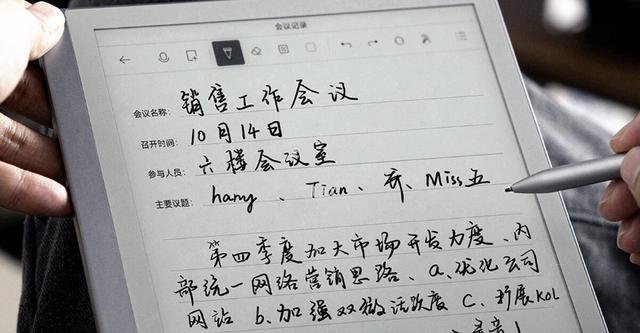 会议记录
会议名称: 销售工作会议
召开时间: 10月14日
参与人员: 六楼会议室
主要议题: harry、Tian、乔、Miss王
第四季度加大市场开发力度、内
部统一网络营销思路、a.优化公司
网站 b.加强双微活跃度 C、拓展KOL